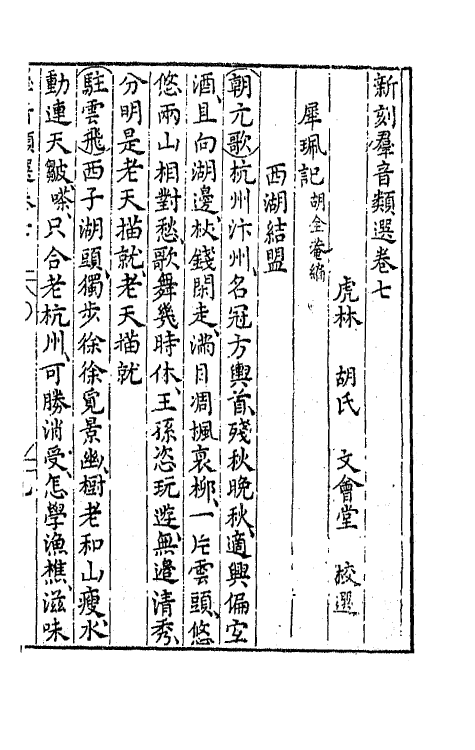 新刻羣音類選卷七
虎林 胡氏 文會堂 校選
犀珮記 胡全菴編
西湖結盟
朝元歌 杭州汴州、名冠方輿首、殘秋晚秋、適興偏宜
酒、且向湖邊、杖錢閑走、滿目凋楓衰柳、一片雲頭、悠
悠兩山相對愁、歌舞幾時休、王孫恣玩遊、無邊清秀、
分明是老天描就、老天描就
駐雲飛 西子湖頭、獨步徐徐覓景幽、樹老和山瘦、水
動連天皺、嗏、只合老杭州、可勝消受、怎學漁樵滋味